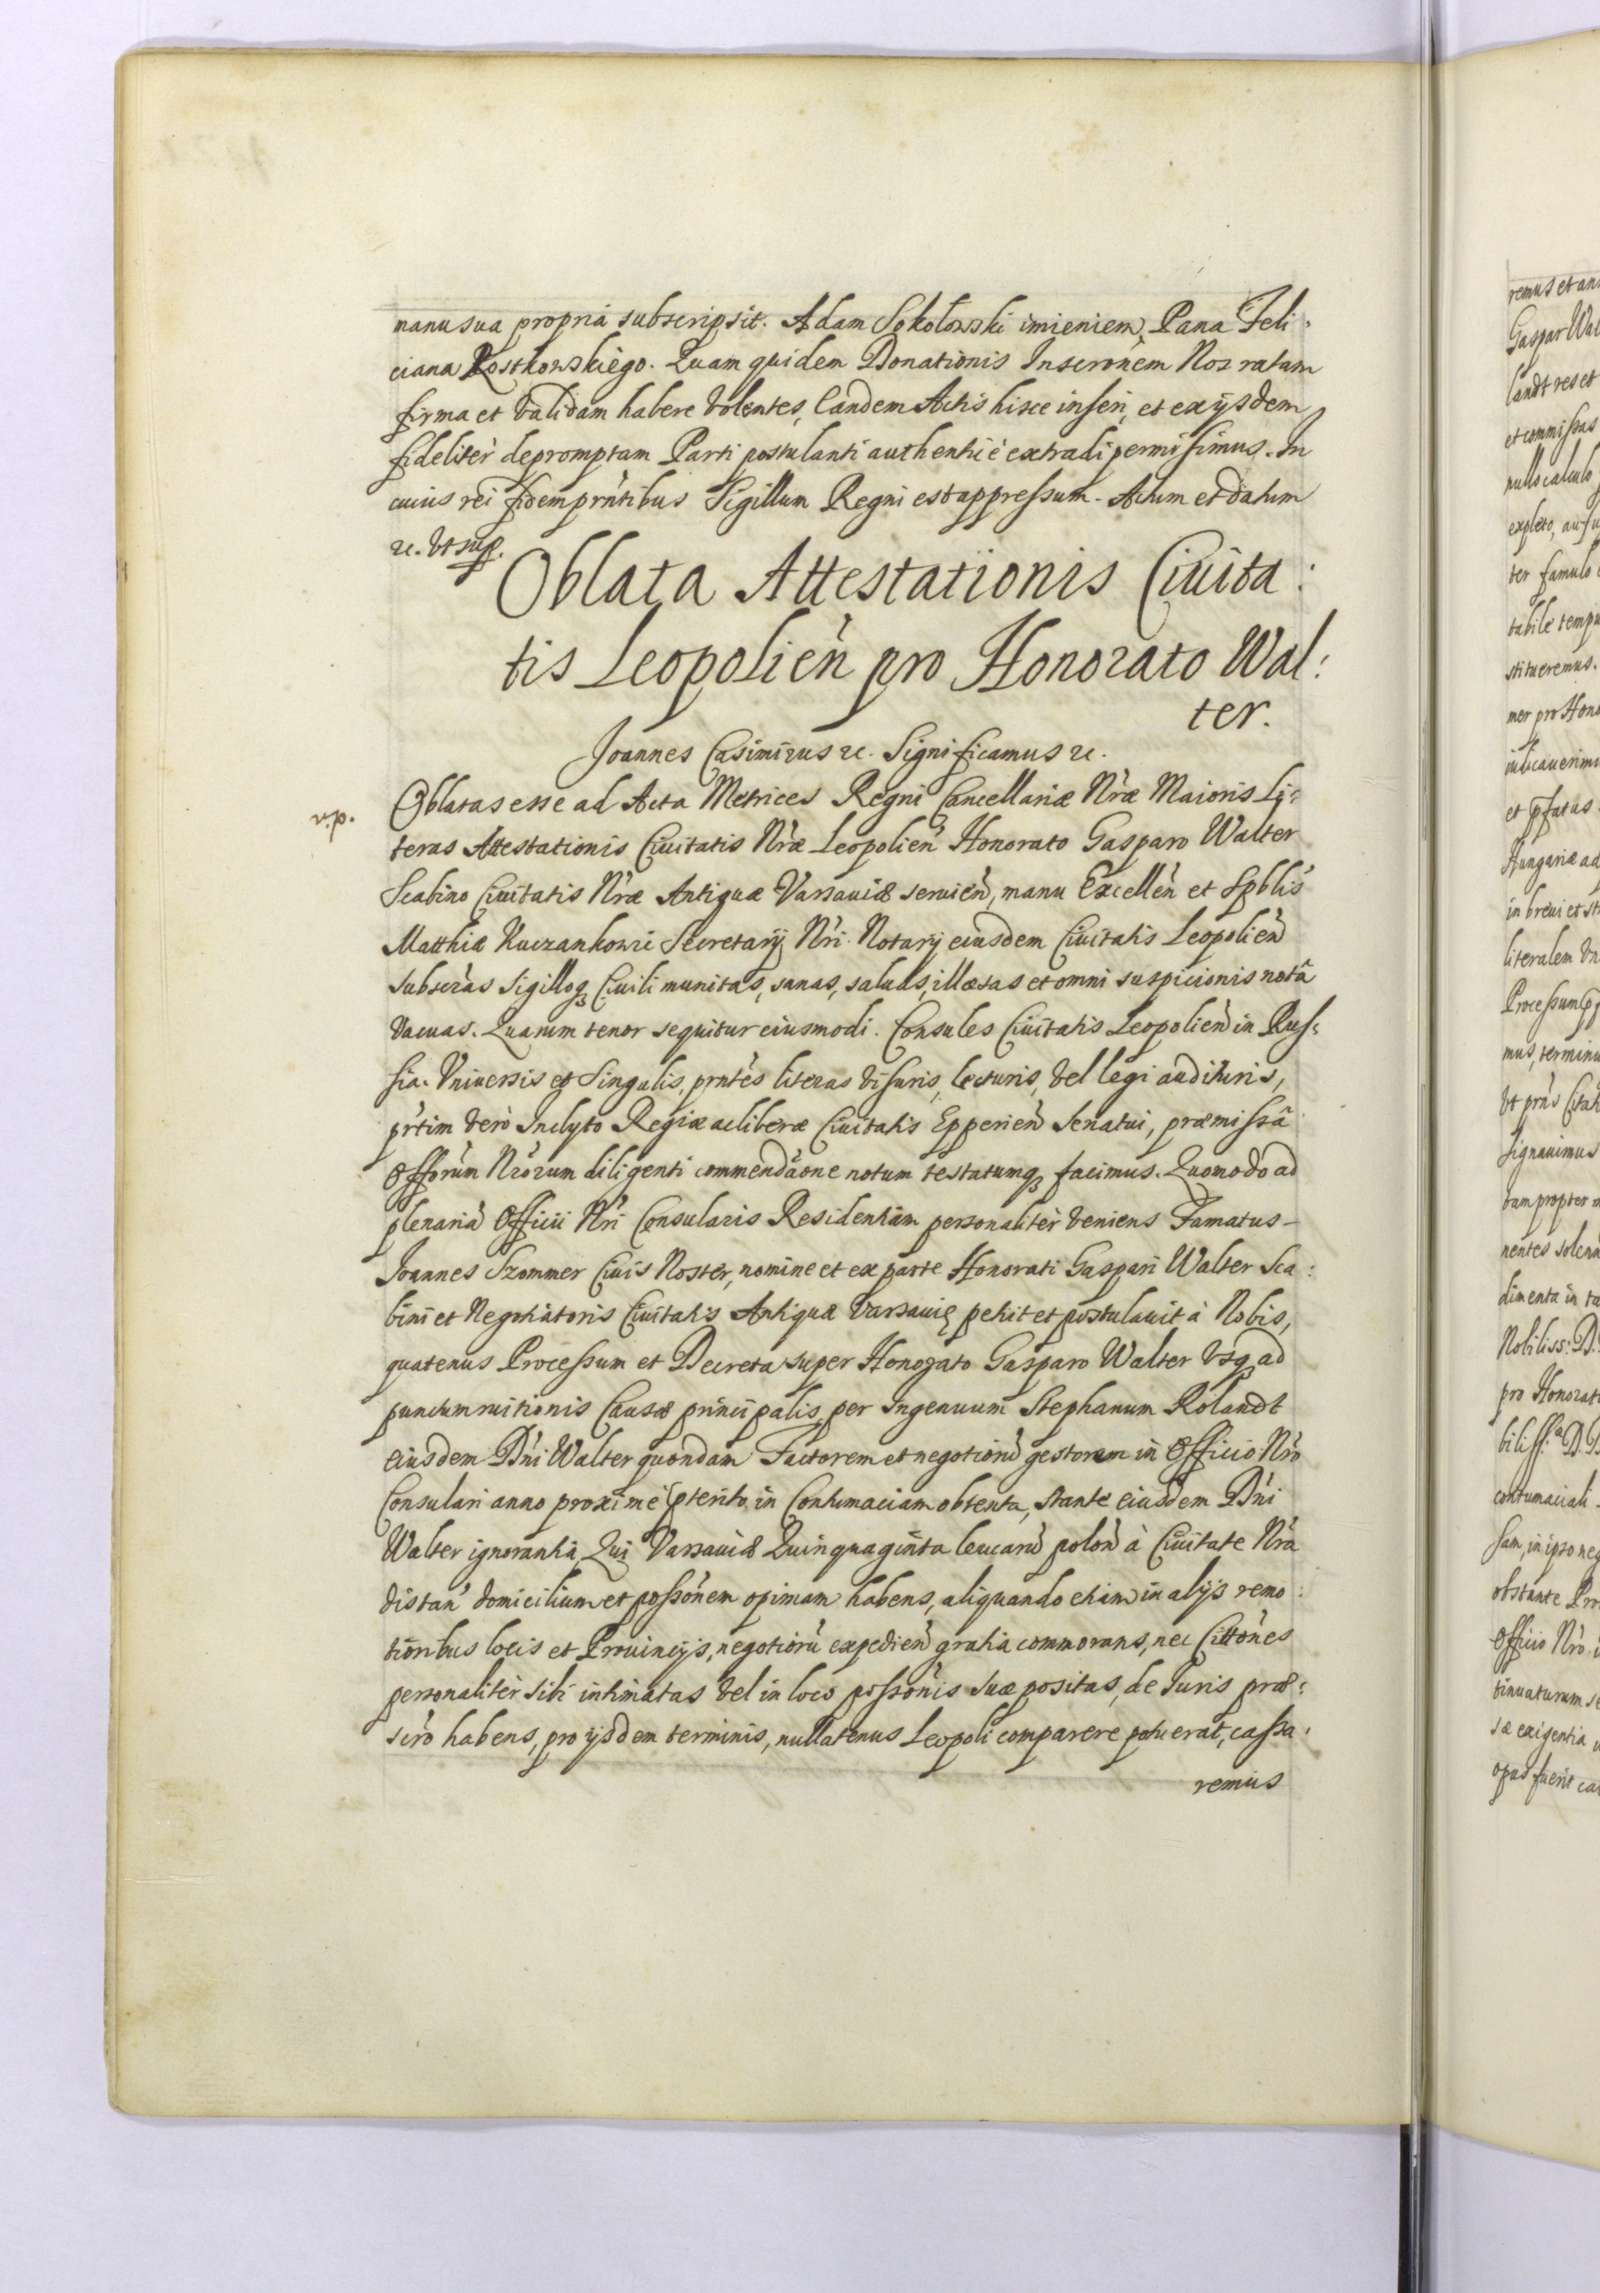 manu sua propria subscripsit. Adam Sokołowski imieniem Pana Feli:
ciana Rostkowskiego. Quam quidem Donationis Inscrōnem Nos ratam
firma et validam habere volentes, Eandem Actis hisce inseri, et ex ijsdem
fideliter depromptam Parti postulanti authenticè extradi permisimus. In
cuius rei fidem prntibus Sigillum Regni est appressum. Actum et datum
etc. vt sup.
Oblata Attestationis Ciuita:
tis Leopolien pro Honorato Wal:
ter.
Joannes Casimirus etc. Significamus etc.
Oblatas esse ad Acta Metrices Regni Cancellariæ Nræ Maioris Li:
teras Attestationis Ciuitatis Nræ Leopolien Honorato Gasparo Walter
Scabino Ciuitatis Nræ Antiquæ Varsauiæ seruien, manu Excellen et Spblis
Matthiæ Kuczankowic Secretarij Nri Notarij eiusdem Ciuitatis Leopolien
subscras Sigilloq3 Ciuili munitas, sanas, saluas, illæsas et omni suspicionis notâ
vacuas. Quarum tenor sequitur eiusmodi. Consules Ciuitatis Leopolien in Rus:
sia. Vniuersis et Singulis, prntes literas visuris, lecturis, vel legi audituris,
prtim verò Inclyto Regiæ ac liberæ Ciuitatis Epperien Senatui, præmissâ
Offorum Nrorum diligenti commendaōne notum testatumq3 facimus. Quomodo ad
plenariā Officii Nri Consularis Residentiam personaliter veniens Famatus
Joannes Szommer Ciuis Noster, nomine et ex parte Honorati Gaspari Walter Sca:
bini et Negotiatoris Ciuitatis Antiquæ Varsauię petit et postulauit à Nobis,
quatenus Processum et Decreta super Honorato Gasparo Walter vsq3 ad
punctum ruitionis Causæ principalis, per Ingenuum Stephanum Rolandt
eiusdem Dni Walter quondam Factorem et negotiorū gestorem in Officio Nro
Consulari anno proximè pterito in Contumaciam obtenta, stante eiusdem Dni
Walter ignorantia, Qui Varsauiæ Quinquaginta leucarū polon à Ciuitate Nra
distan domicilium et possonem opimam habens, aliquando etiam in alijs remo:
tioribus locis et Prouincijs, negotiorū expedien gratia commorans, nec Cittones
personaliter sibi intimatas vel in loco possonis suæ positas, de Iuris præ:
scro habens, pro ijsdem terminis, nullatenus Leopoli comparere potuerat, cassa:
remus